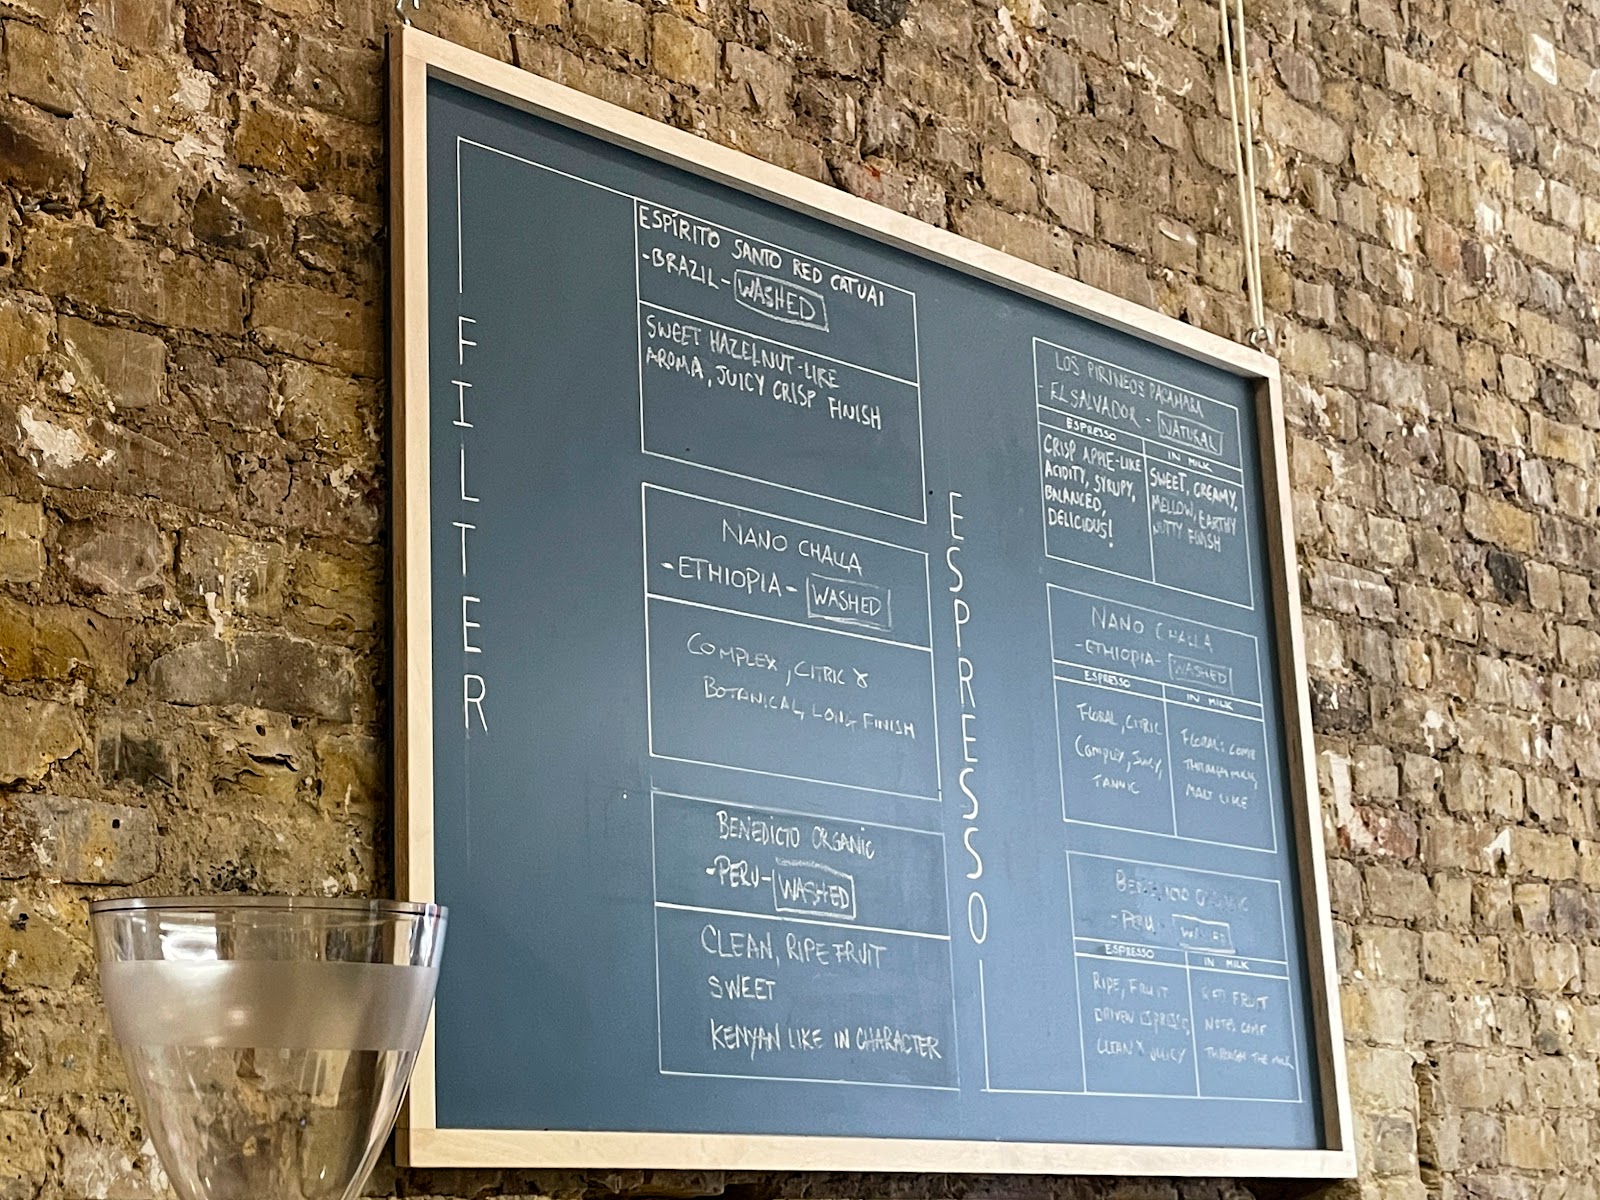 FILTER
ESPÍRITO SANTO RED CATUAI
-BRAZIL- WASHED
SWEET HAZELNUT-LIKE
AROMA, JUICY CRISP FINISH
NANO CHALLA
-ETHIOPIA- WASHED
COMPLEX, CITRIC &
BOTANICAL, LONG FINISH
BENEDICTO ORGANIC
-PERU- WASHED
CLEAN, RIPE FRUIT
SWEET
KENYAN LIKE IN CHARACTER
ESPRESSO
LOS PIRINEOS PACAMARA
- EL SALVADOR - NATURAL
ESPRESSO
CRISP APPLE-LIKE
ACIDITY, SYRUPY,
BALANCED,
DELICIOUS!
IN MILK
SWEET, CREAMY,
MELLOW, EARTHY
NUTTY FINISH
NANO CHALLA
-ETHIOPIA- WASHED
ESPRESSO
FLORAL, CITRIC
COMPLEX, JUICY,
TANNIC
IN MILK
FLORAL'S COME
THROUGH MILK,
MALT LIKE
BENEDICTO ORGANIC
- PERU - WASHED
ESPRESSO
RIPE, FRUIT
DRIVEN ESPRESSO,
CLEAN & JUICY
IN MILK
RED FRUIT
NOTES COME
THROUGH THE MILK